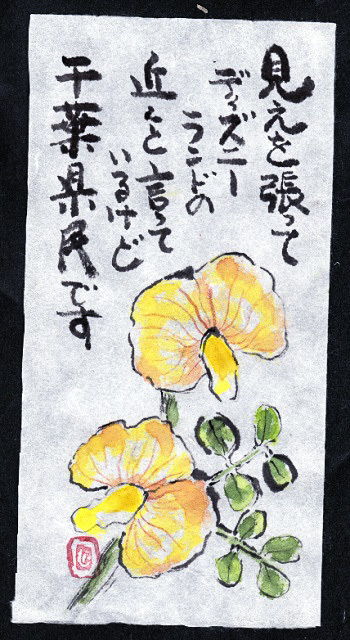 見えを張って
ディズニー
ランドの
近くと言って
いるけど
千葉県民です